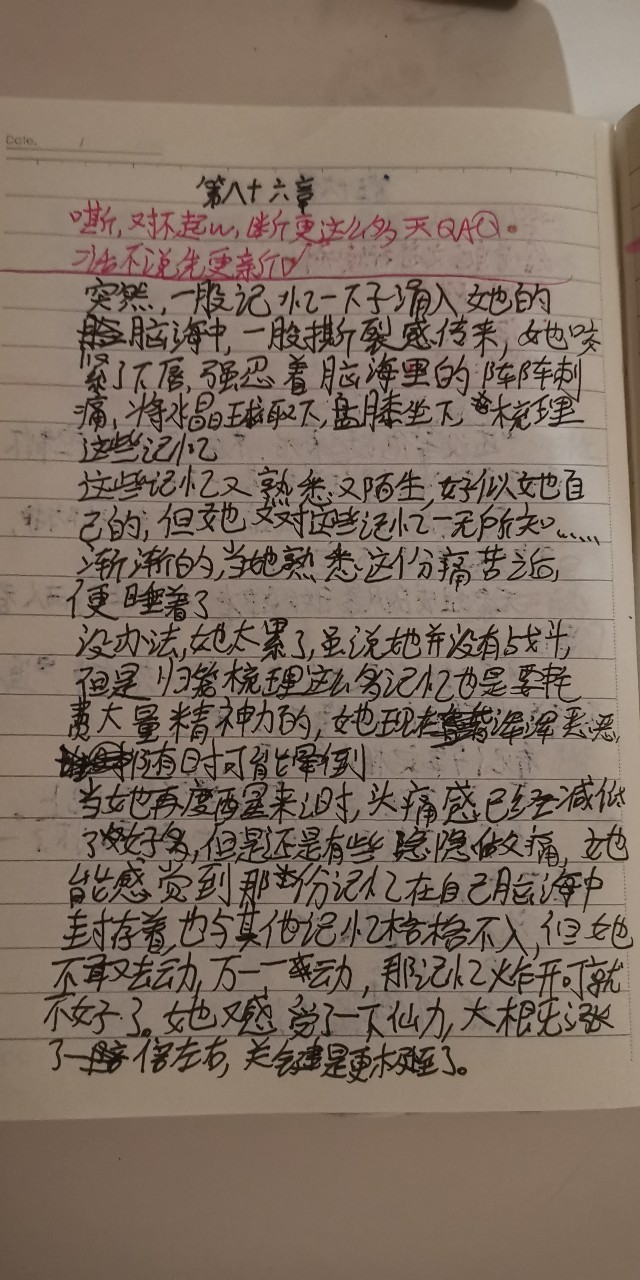 Date. /
第八十六章
嘶,又对不起w,断更这么多天QAQ。
话不说先更新
突然,一股记忆一下子涌入她的
脑海中,一股撕裂感传来,她咬
紧了下唇,强忍着脑海里的阵阵刺
痛,将水晶球取下,盘膝坐下,梳理
这些记忆
这些记忆又熟悉又陌生,好似她自
己的,但她又对这些记忆一无所知......
渐渐的,当她熟悉这份痛苦之后,
便睡着了
没办法,她太累了,虽说她并没有战斗,
但是归笼梳理这么多记忆也是要耗
费大量精神力的,她现在浑浑恶恶,
随时有可能晕倒
当她再度醒来时,头痛感已经减低
了好多,但是还是有些隐隐做痛,她
能感觉到那份记忆在自己脑海中
封存着,也与其他记忆格格不入,但她
不敢去动,万一一动,那记忆炸开可就
不好了。她又感觉了一下仙力,大概又涨
了一倍左右,关键是更极了。